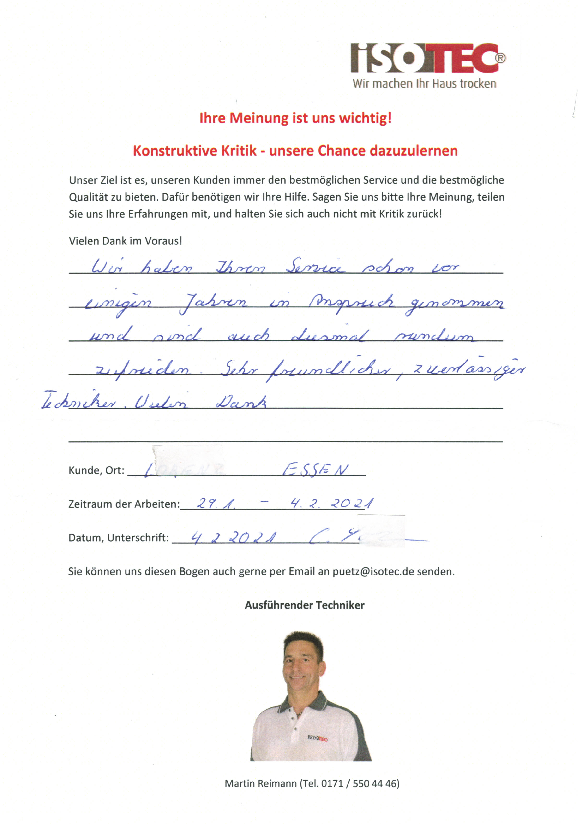 ISOTEC®
Wir machen Ihr Haus trocken
Ihre Meinung ist uns wichtig!
Konstruktive Kritik - unsere Chance dazuzulernen
Unser Ziel ist es, unseren Kunden immer den bestmöglichen Service und die bestmögliche
Qualität zu bieten. Dafür benötigen wir Ihre Hilfe. Sagen Sie uns bitte Ihre Meinung, teilen
Sie uns Ihre Erfahrungen mit, und halten Sie sich auch nicht mit Kritik zurück!
Vielen Dank im Voraus!
Wir haben Ihren Service schon vor
einigen Jahren in Anspruch genommen
und sind auch diesmal rundum
zufrieden. Sehr freundlicher, zuverlässiger
Techniker. Vielen Dank
Kunde, Ort: ESSEN
Zeitraum der Arbeiten: 29.1. - 4.2.2021
Datum, Unterschrift: 4 2 2021
Sie können uns diesen Bogen auch gerne per Email an puetz@isotec.de senden.
Ausführender Techniker
ISOTEC
Martin Reimann (Tel. 0171 / 550 44 46)